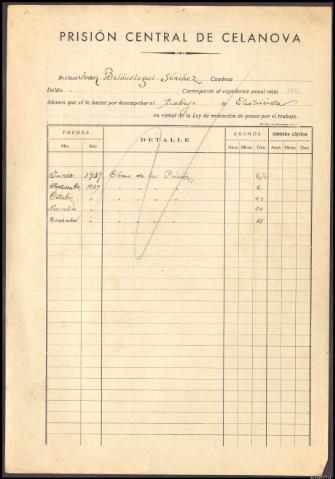 PRISIÓN CENTRAL DE CELANOVA
Recluso Juan Sánchez Condena
Delito Corresponde al expediente penal núm.
Abonos que se le hacen por desempeñar el trabajo de
en virtud de la Ley de redención de penas por el trabajo.
FECHAS DETALLE ABONOS CONDENA LÍQUIDA
Mes Año Años Meses Días Años Meses Días
Junio 1939 Obras de la Prisión
1939 " " " " 6
Octubre " " " "
Noviembre " " " " 20
" " " " 25